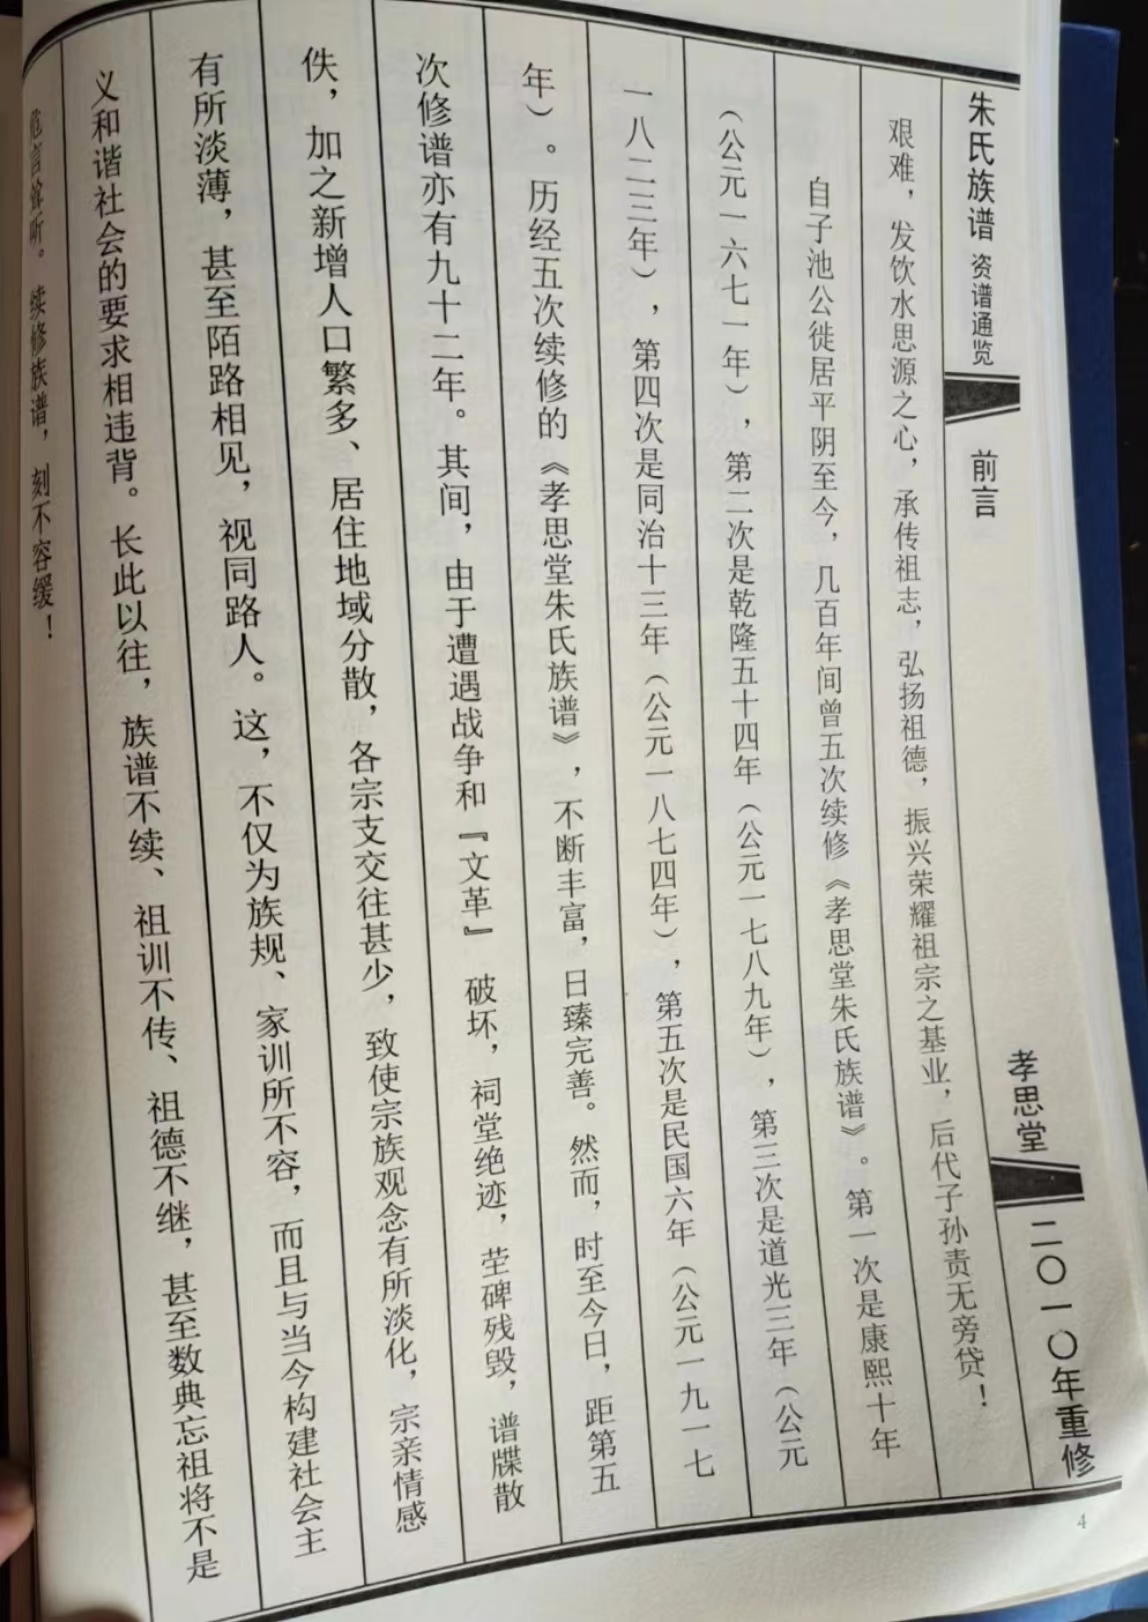 朱氏族谱 资谱通览 前言 孝思堂 二〇一〇年重修
艰难，发饮水思源之心，承传祖志，弘扬祖德，振兴荣耀祖宗之基业，后代子孙责无旁贷！
自子池公徙居平阴至今，几百年间曾五次续修《孝思堂朱氏族谱》。第一次是康熙十年
（公元一六七一年），第二次是乾隆五十四年（公元一七八九年），第三次是道光三年（公元
一八二三年），第四次是同治十三年（公元一八七四年），第五次是民国六年（公元一九一七
年）。历经五次续修的《孝思堂朱氏族谱》，不断丰富，日臻完善。然而，时至今日，距第五
次修谱亦有九十二年。其间，由于遭遇战争和『文革』破坏，祠堂绝迹，茔碑残毁，谱牒散
佚，加之新增人口繁多、居住地域分散，各宗支交往甚少，致使宗族观念有所淡化，宗亲情感
有所淡薄，甚至陌路相见，视同路人。这，不仅为族规、家训所不容，而且与当今构建社会主
义和谐社会的要求相违背。长此以往，族谱不续、祖训不传、祖德不继，甚至数典忘祖将不是
危言耸听。续修族谱，刻不容缓！
4